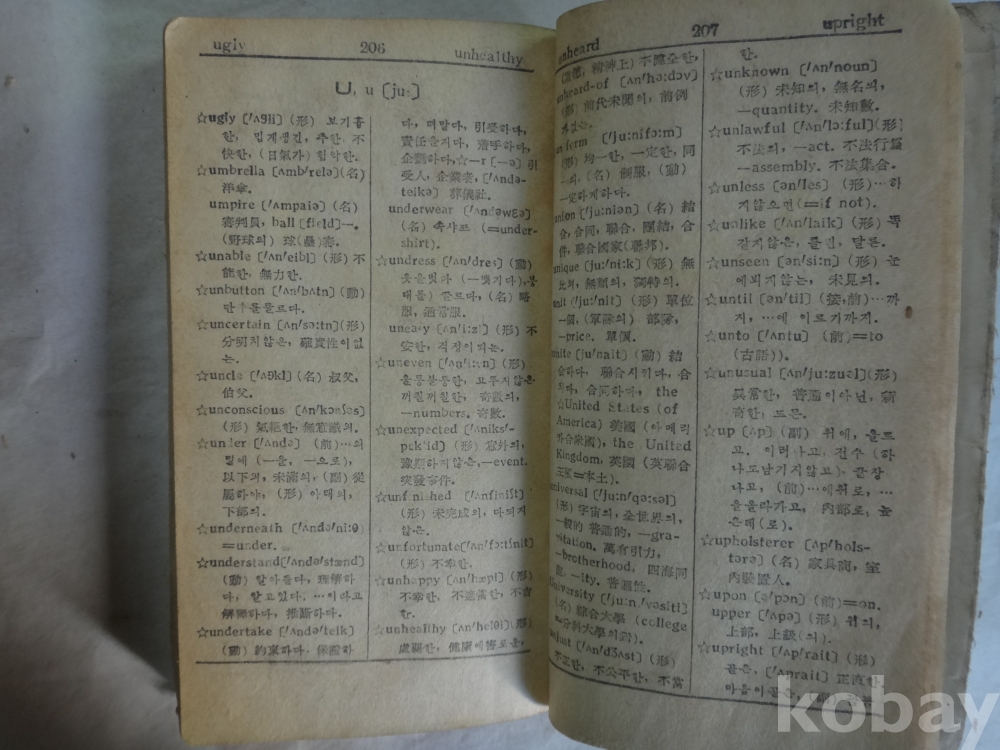 ugly 206 unhealthy
U, u [ju:]
☆ugly ['ʌgli] (形) 보기흉
한, 밉게생긴, 추한, 不
快한, (日氣가) 험악한.
☆umbrella [ʌmb'relə](名)
洋傘.
umpire ['ʌmpaiə] (名)
審判員, ball [field]—.
(野球의) 球(壘)審.
☆unable [ʌn'eibl] (形) 不
能한, 無力한.
☆unbutton [ʌn'bʌtn] (動)
단추를풀르다.
☆uncertain [ʌn'sə:tn](形)
分明치않은, 確實性이없
는.
☆uncle ['ʌŋkl] (名) 叔父,
伯父.
☆unconscious [ʌn'kɔnʃəs]
(形) 氣絶한, 無意識의.
☆under ['ʌndə] (前)…의
밑에 (—을, —으로),
以下의, 未滿의, (副) 從
屬하야, (形) 아래의,
下部의.
☆underneath [ʌndə'ni:θ]
=under.
☆understand[ʌndə'stænd]
(動) 알아듣다, 理解하
다, 알고있다. …이라고
解釋하다, 推斷하다.
☆undertake [ʌndə'teik]
(動) 約束하다. 保證하
다, 떠맡다, 引受하다,
責任을지다, 着手하다,
企劃하다,☆—r [—ə] 引
受人, 企業家, ['ʌndə-
teikə] 葬儀社.
underwear ['ʌndəwɛə]
(名) 속샤쓰 (=under-
shirt).
☆undress [ʌn'dres] (動)
옷을벗다 (—벗기다),붕
대를) 끌르다, (名) 略
服, 通常服.
uneasy [ʌn'i:zi] (形) 不
安한, 걱정이되는.
☆uneven [ʌn'i:vn] (形)
울퉁불퉁한, 고루지않은
꺼칠꺼칠한, 奇數의,
—numbers. 奇數.
☆unexpected [ʌniks'-
pek'id] (形) 意外의,
豫期하지않은,—event.
突發事件.
☆unfinished [ʌnfiniʃt]
(形) 未完成의, 다되지
않은.
☆unfortunate[ʌn'fɔ:tʃnit]
(形) 不幸한.
☆unhappy [ʌn'hæpi] (形)
不幸한, 不適當한, 不吉
한.
☆unhealthy [ʌn'helθi] (形)
虛弱한, 健康에害로운,
unheard 207 upright
(道德, 精神上) 不健全한,
unheard-of [ʌn'hə:dɔv]
(形) 前代未聞의, 前例
['ju:nifɔ:m]
(形) 均一한, 一定한, 同
一의, (名) 制服, (動)
一定하게하다.
union ['ju:niən] (名) 結
合, 合同, 聯合, 團結, 合
併, 聯合國家(聯邦).
unique [ju:'ni:k] (形) 無
比의, 無類의, 獨特의.
unit ['ju:'nit] (形) 單位
一個, (軍隊의) 部隊,
—price. 單價.
unite [ju'nait] (動) 結
合하다, 聯合시키다, 合
되다, 合同하다, the
☆United States (of
America) 美國 (아메리
카合衆國), the United
Kingdom, 英國 (英聯合
王國=本土).
universal [ju:n'və:səl]
(形) 宇宙의, 全世界의,
一般的 普遍的, —gra-
vitation. 萬有引力,
—brotherhood, 四海同
胞. —ity. 普遍性.
University [ju:n,'vəsiti]
(名) 綜合大學 (college
=分科大學의對).
unjust [ʌn'dʒʌst] (形)
不正한, 不公平한, 不當
한.
☆unknown ['ʌn'noun]
(形) 未知의, 無名의,
—quantity. 未知數.
☆unlawful ['ʌn'lɔ:ful](形)
不法의, —act. 不法行爲
—assembly. 不法集合.
☆unless [ən'les] (形)…하
지않으면(=if not).
☆unlike ['ʌn'laik] (形) 똑
같지않은, 틀린, 달른.
☆unseen [ən'si:n] (形) 눈
에뵈지않는, 未見의.
☆until [ən'til] (接,前)…까
지, …에 이르기까지.
☆unto ['ʌntu] (前)=to
(古語)).
☆unusual [ʌn'ju:zuəl](形)
異常한, 普通이아닌, 稀
奇한, 드믄.
☆up [ʌp] (副) 위에, 올르
고, 이러나고, 전수 (하
나도남기지않고), 끝장
나고, (前)…에위로, …
을올라가고, 內部로, 높
은데(로).
☆upholsterer [ʌp'hols-
tərə] (名) 家具商, 室
內裝置人.
☆upon [ə'pɔn] (前)=on.
upper ['ʌpə] (形) 위의,
上部, 上級(의).
☆upright ['ʌp'rait] (形)
곧은, ['ʌprait] 正直한
kobay